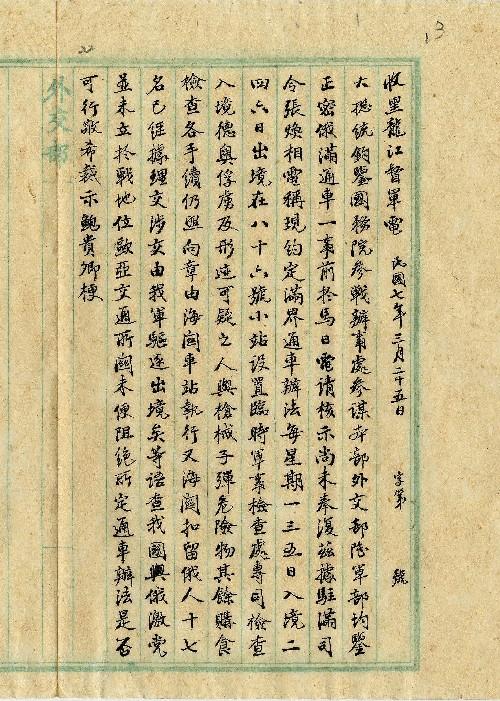 13
收黑龍江督軍電 民國七年三月二十五日 字第 號
大總統鈞鑒國務院參戰辦事處參謀本部外交部陸軍部均鑒
正密俄滿通車一事前於馬日電請核示尚未奉復茲據駐滿司
令張煥相電稱現約定滿界通車辦法每星期一三五日入境二
四六日出境在八十六號小站設置臨時軍事檢查處專司檢查
入境德奧俘虜及形迹可疑之人與槍械子彈危險物其餘購食
檢查各手續仍照向章由海關車站執行又海關扣留俄人十七
名已經據理交涉交由我軍驅逐出境矣等語查我國與俄激党
並未立於戰地位歐亞交通所關未便阻絕所定通車辦法是否
可行敬希裁示鮑貴卿梗
外交部